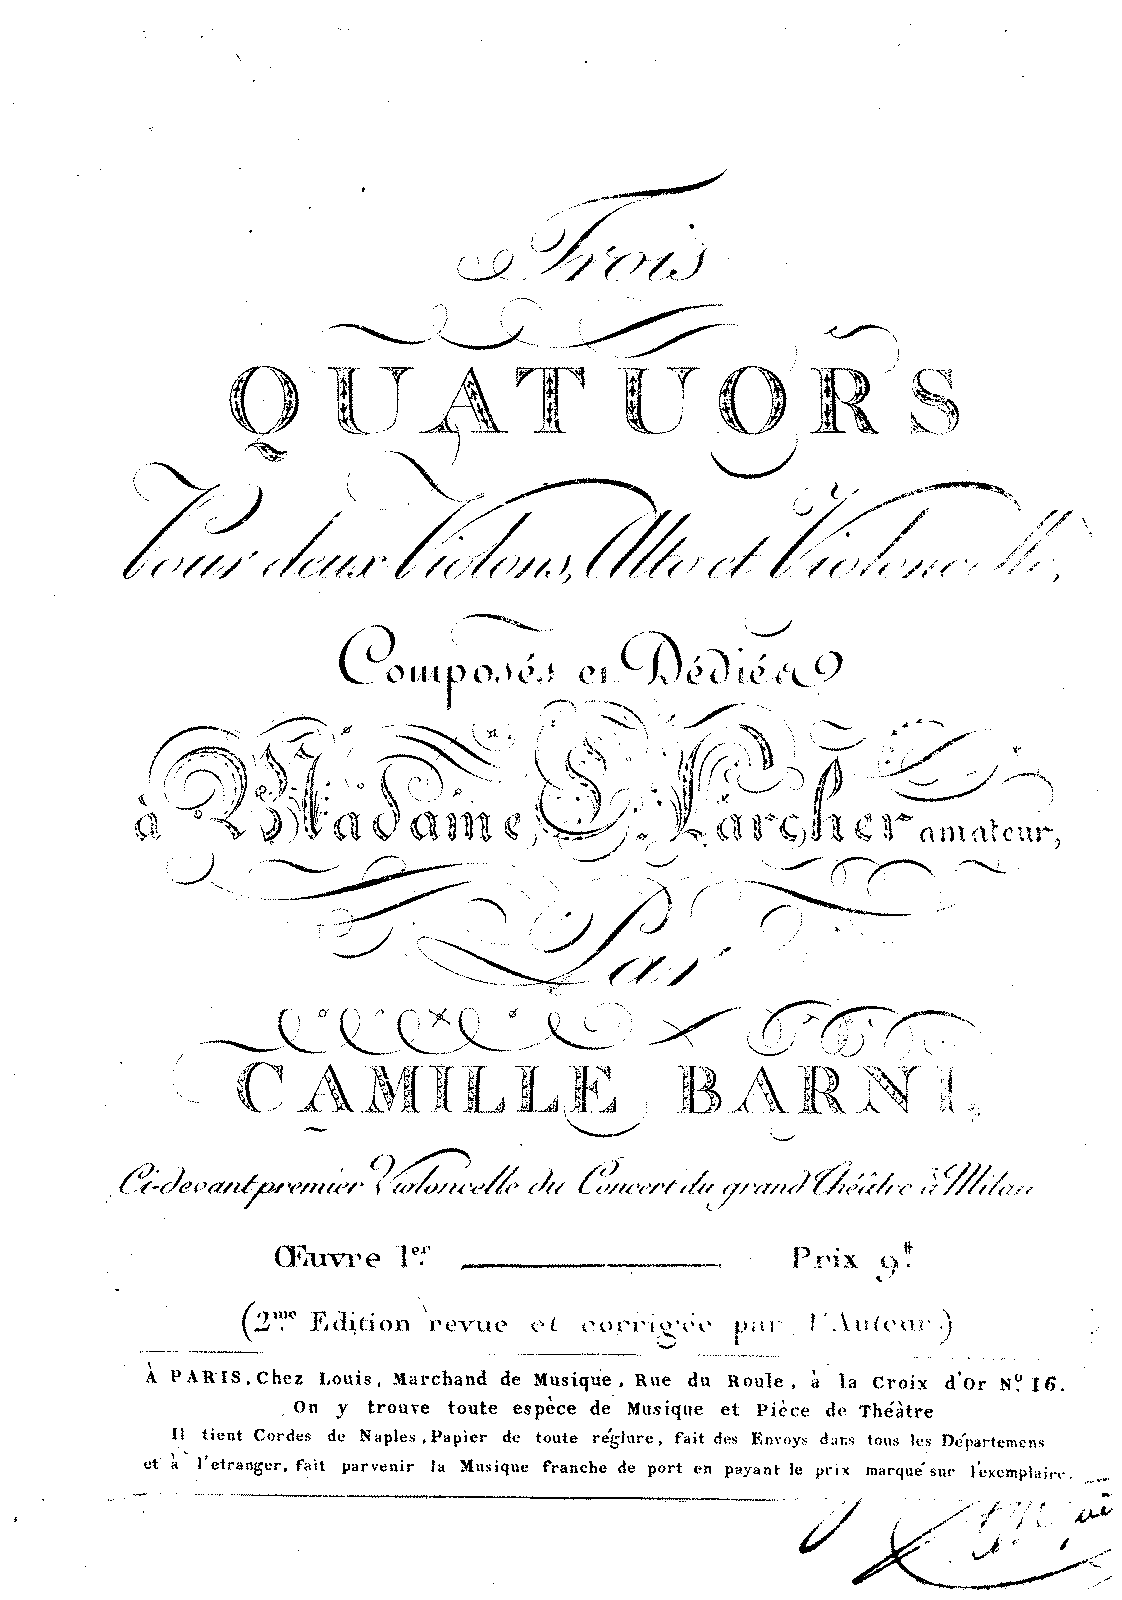 Trois
QUATUORS
Pour deux Violons, Alto et Violoncelle,
Composés et Dédiés
à Madame, E. Larcher amateur,
Par
CAMILLE BARNI,
Ci-devant premier Violoncelle du Concert du grand Théâtre à Milan
Œuvre 1.er Prix 9.#
(2.me Edition revue et corrigée par l'Auteur.)
À PARIS, Chez Louis, Marchand de Musique, Rue du Roule, à la Croix d'Or N.o 16.
On y trouve toute espèce de Musique et Pièce de Théâtre
Il tient Cordes de Naples, Papier de toute réglure, fait des Envoys dans tous les Départemens
et à l'etranger, fait parvenir la Musique franche de port en payant le prix marqué sur l'exemplaire.